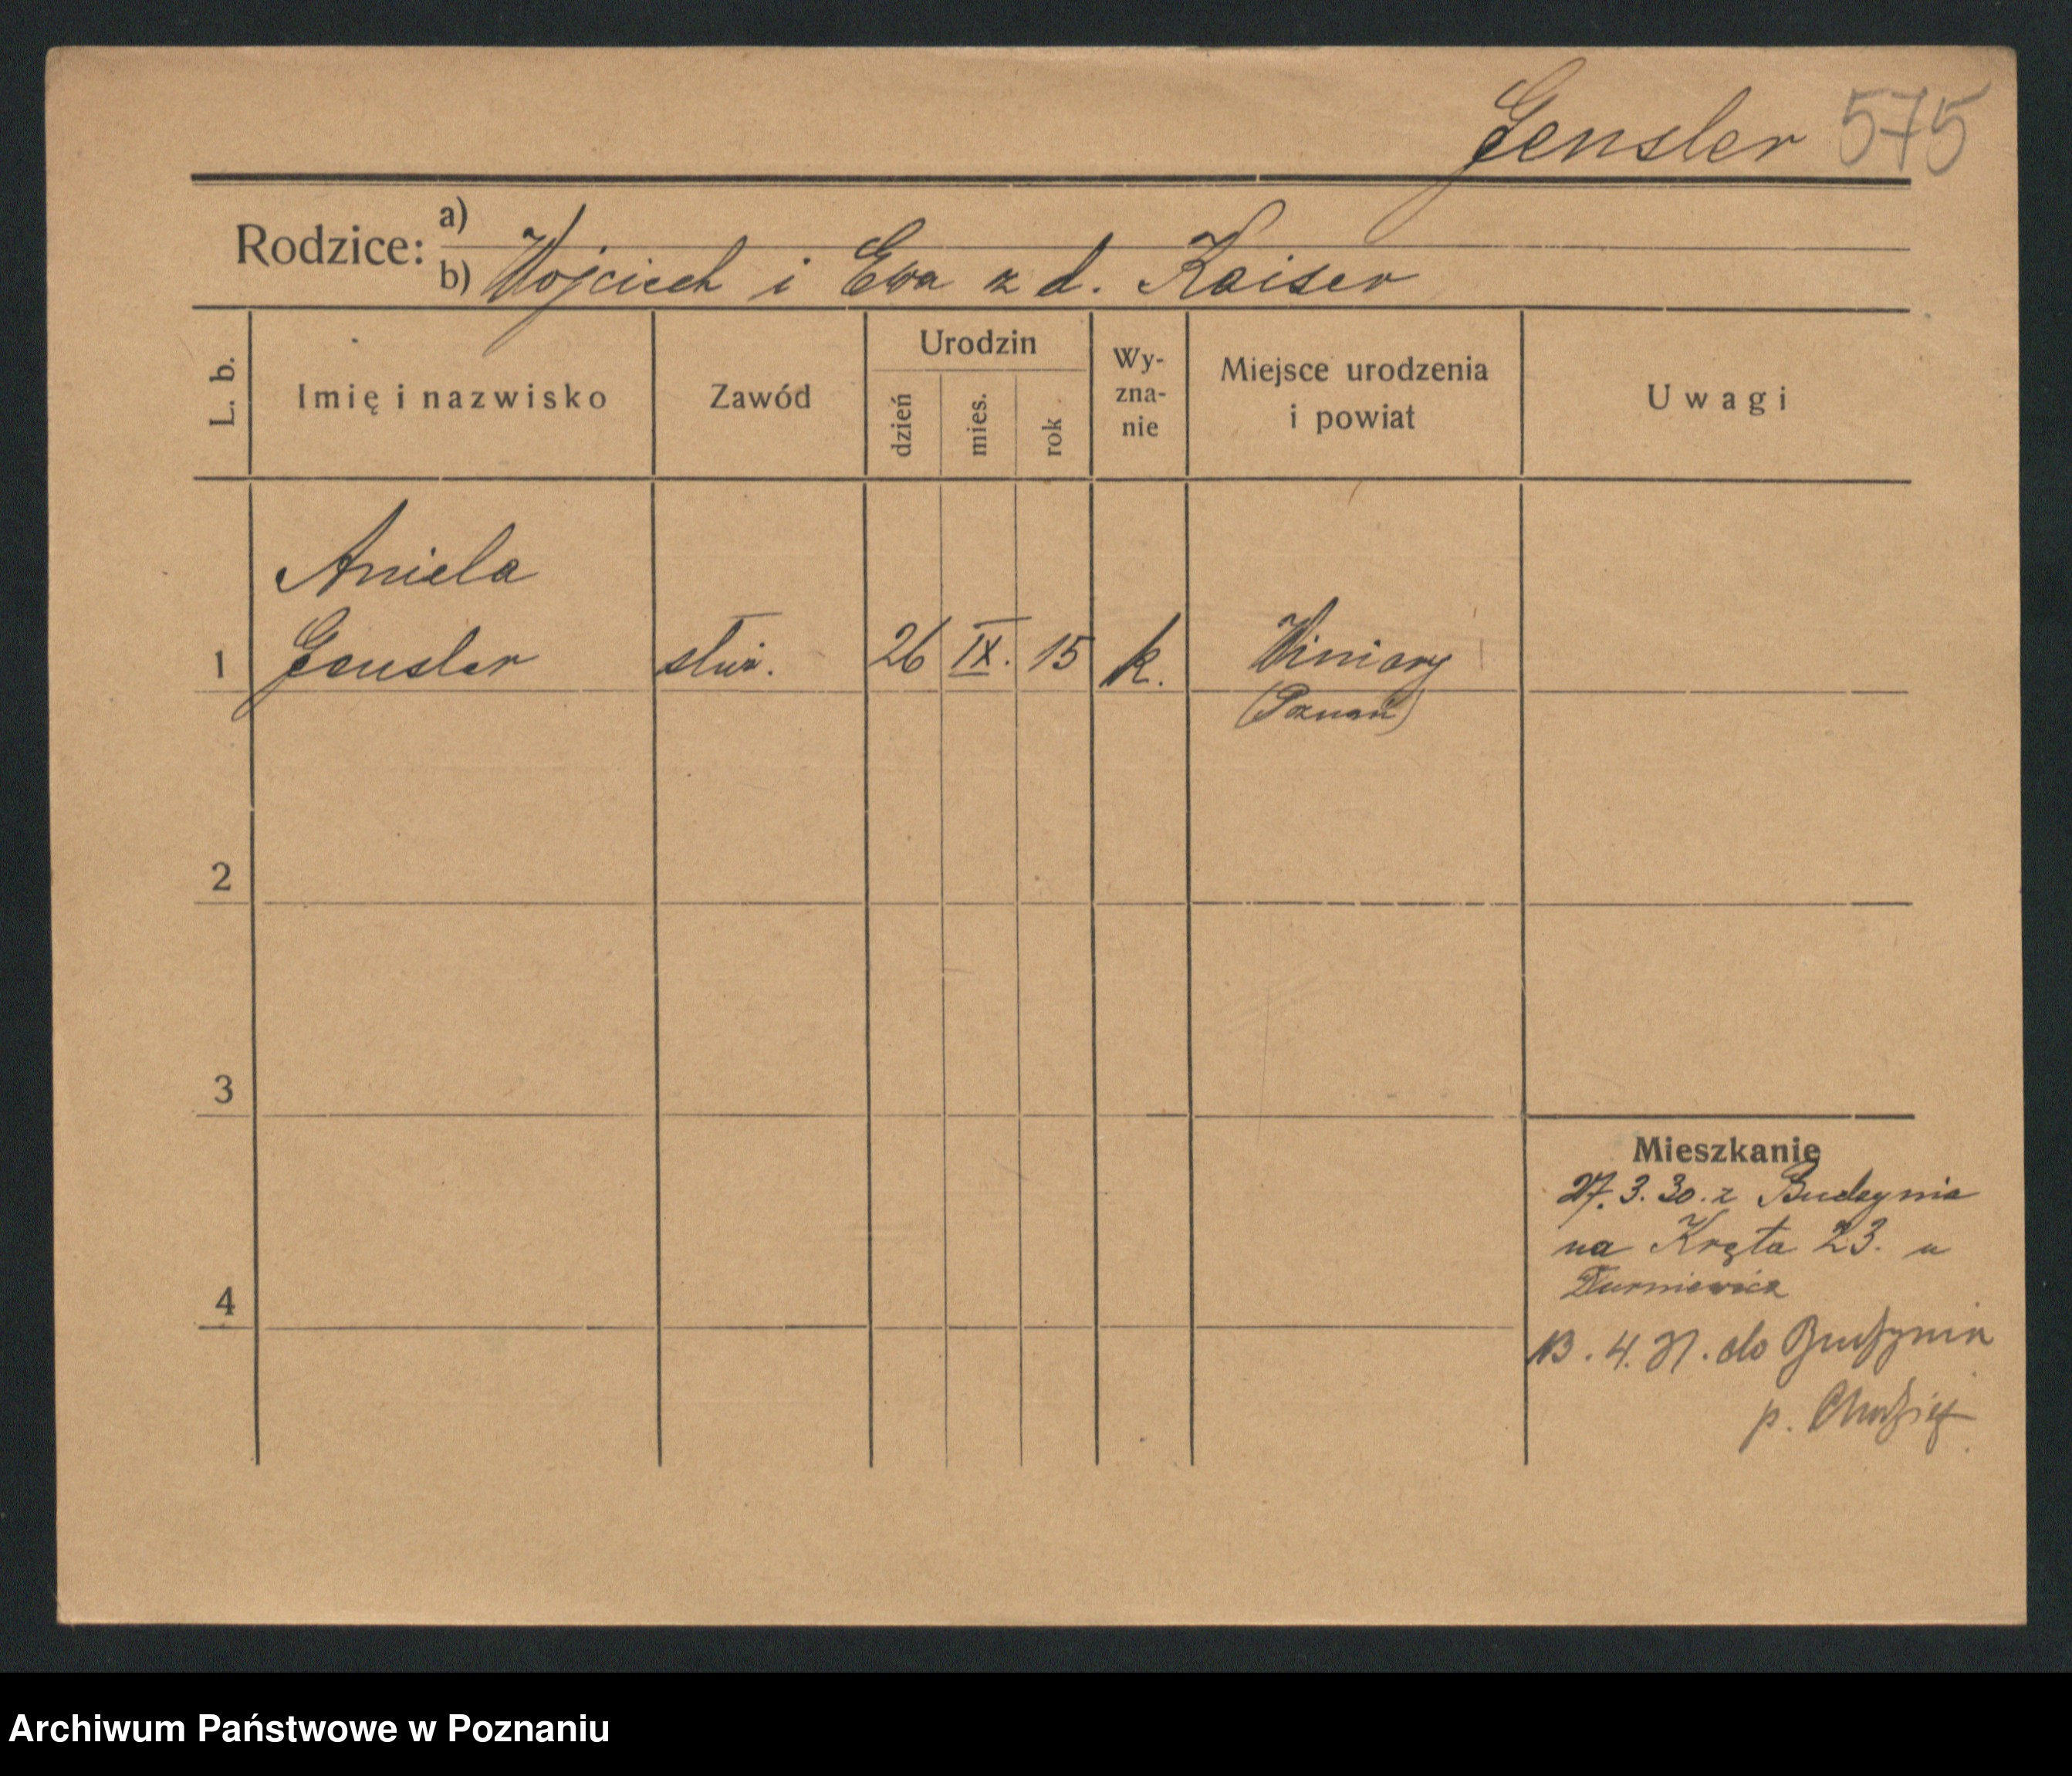 Gensler 575
Rodzice: a)
b) Wojciech i Ewa z d. Kaiser
L. b. Imię i nazwisko Zawód Urodzin dzień mies. rok Wy-zna-nie Miejsce urodzenia i powiat Uwagi
Aniela
1 Gensler służ. 26 IX. 15 k. Winiary
(Poznań)
2
3
Mieszkanie
27. 3. 30. z Budzynia
na Kręta 23. u
4
4. 31. do Budzynia
p. Chodzież
Archiwum Państwowe w Poznaniu